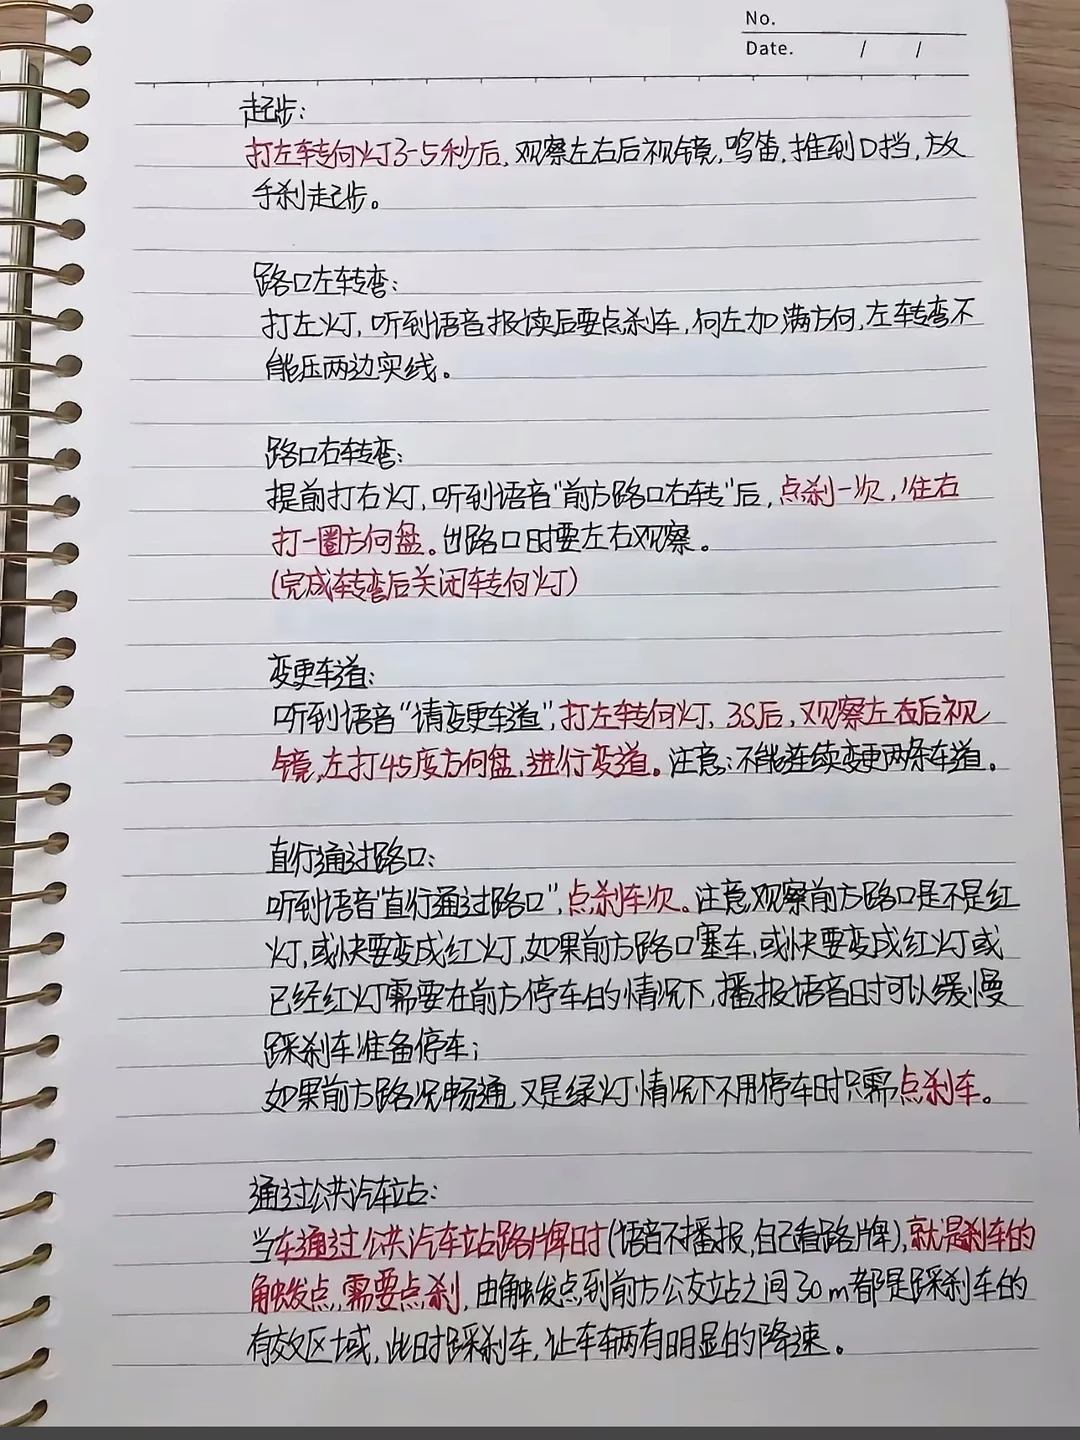 No.
Date. / /
起步:
打左转向灯3-5秒后,观察左右后视镜,鸣笛,推到D挡,放
手刹起步。
路口左转弯:
打左灯,听到语音报读后要点刹车,向左加满方向,左转弯不
能压两边实线。
路口右转弯:
提前打右灯,听到语音"前方路口右转"后,点刹一次,往右
打一圈方向盘。出路口时要左右观察。
(完成转弯后关闭转向灯)
变更车道:
听到语音"请变更车道",打左转向灯,3S后,观察左右后视
镜,左打45度方向盘,进行变道。注意:不能连续变更两条车道。
直行通过路口:
听到语音"直行通过路口",点刹车次。注意观察前方路口是不是红
灯,或快要变成红灯,如果前方路口塞车,或快要变成红灯或
已经红灯需要在前方停车的情况下,播报语音时可以缓慢
踩刹车准备停车;
如果前方路况畅通,又是绿灯情况下不用停车时只需点刹车。
通过公共汽车站:
当车通过公共汽车站路牌时(语音不播报,自己看路牌),就是刹车的
触发点,需要点刹,由触发点到前方公交站之间30m都是踩刹车的
有效区域,此时踩刹车,让车辆有明显的降速。